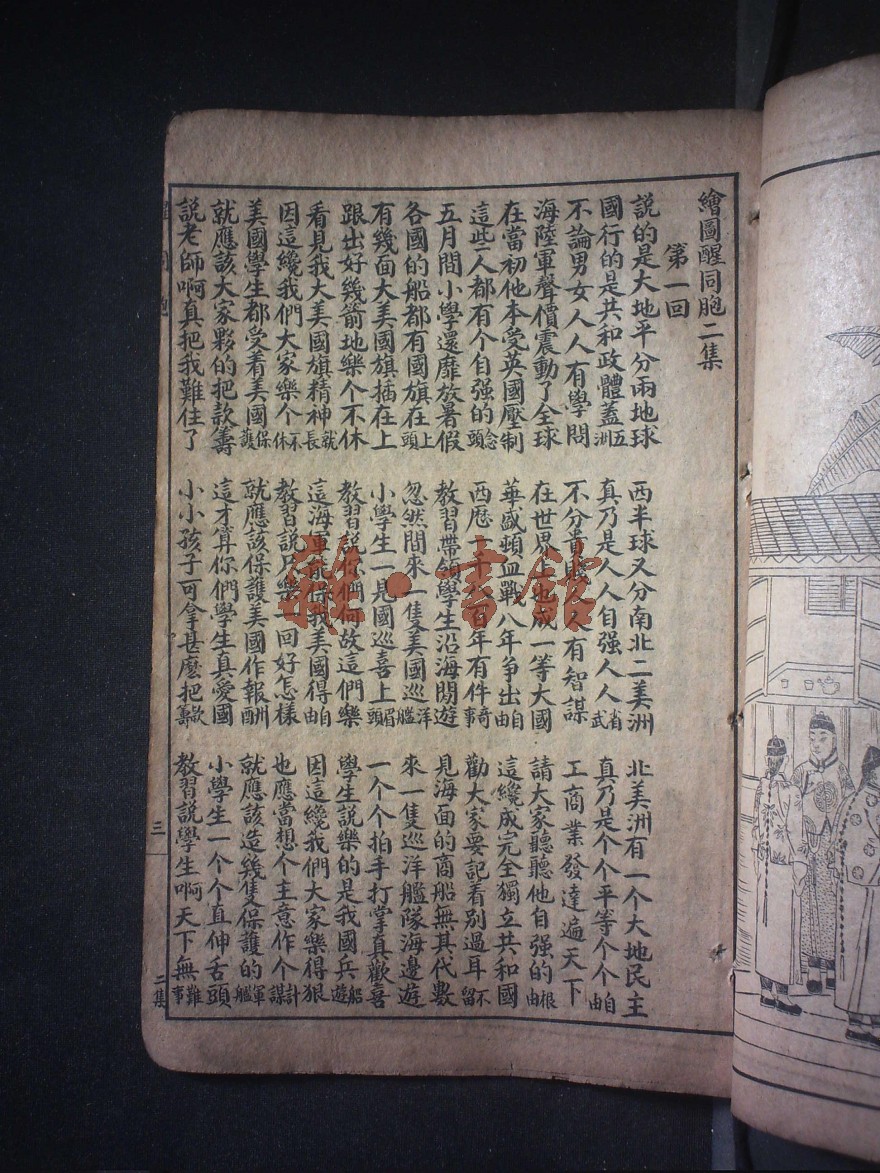 繪圖醒同胞二集
第一回
說的是大地平分兩地球　西半球又分南北二美洲　北美洲有一个大地民主
國行的是共和政體蓋五洲　真乃是人人自强人人省武　真乃是个个平等个个自由
不論男女人人有學問　不分貴賤人人有智謀　工商業發達遍天下
海陸軍聲價震動了全球　在世界上也成一等大國　請大家聽聽他自强的根由
在當初他本受英國壓制　華盛頓血戰八年争出自由　這纔成完全獨立共和國
這些人都有个自强的念頭　西歷一千八百年有件奇事　勸大家要記着别過耳不留
五月間小學還靡放暑假　教習帶領學生沿海閒遊　見海面的商船無其代數
各國的船都有國旗在上頭　忽然間來一隻美國巡洋艦　來一隻巡洋艦隊海邊遊
有幾面大美國旗插在上　小學生一見國巡喜上眉頭　一个个拍手打掌真歡喜
跟出好幾箭地樂个不休　教習說你們何故這們樂　學生說樂的是我國兵船遊
看見我大美國旗精神就長　這海軍能保我美國得自由　因這纔我們大家樂得狠
因這纔我們大家樂个不休　教習說樂一回好怎樣　也應當想个主意作个計謀
美國學生都受着美國保護　就應該保護美國作報酬　就應該造幾隻保護的軍艦
就應該大家夥的把款籌　這才算你們學生真愛國　小學生一个个直伸舌頭
說老師啊真把我難住了　小小孩子可拿甚麽把款籌　教習說學生啊天下無難事
三
二集
雜·書館